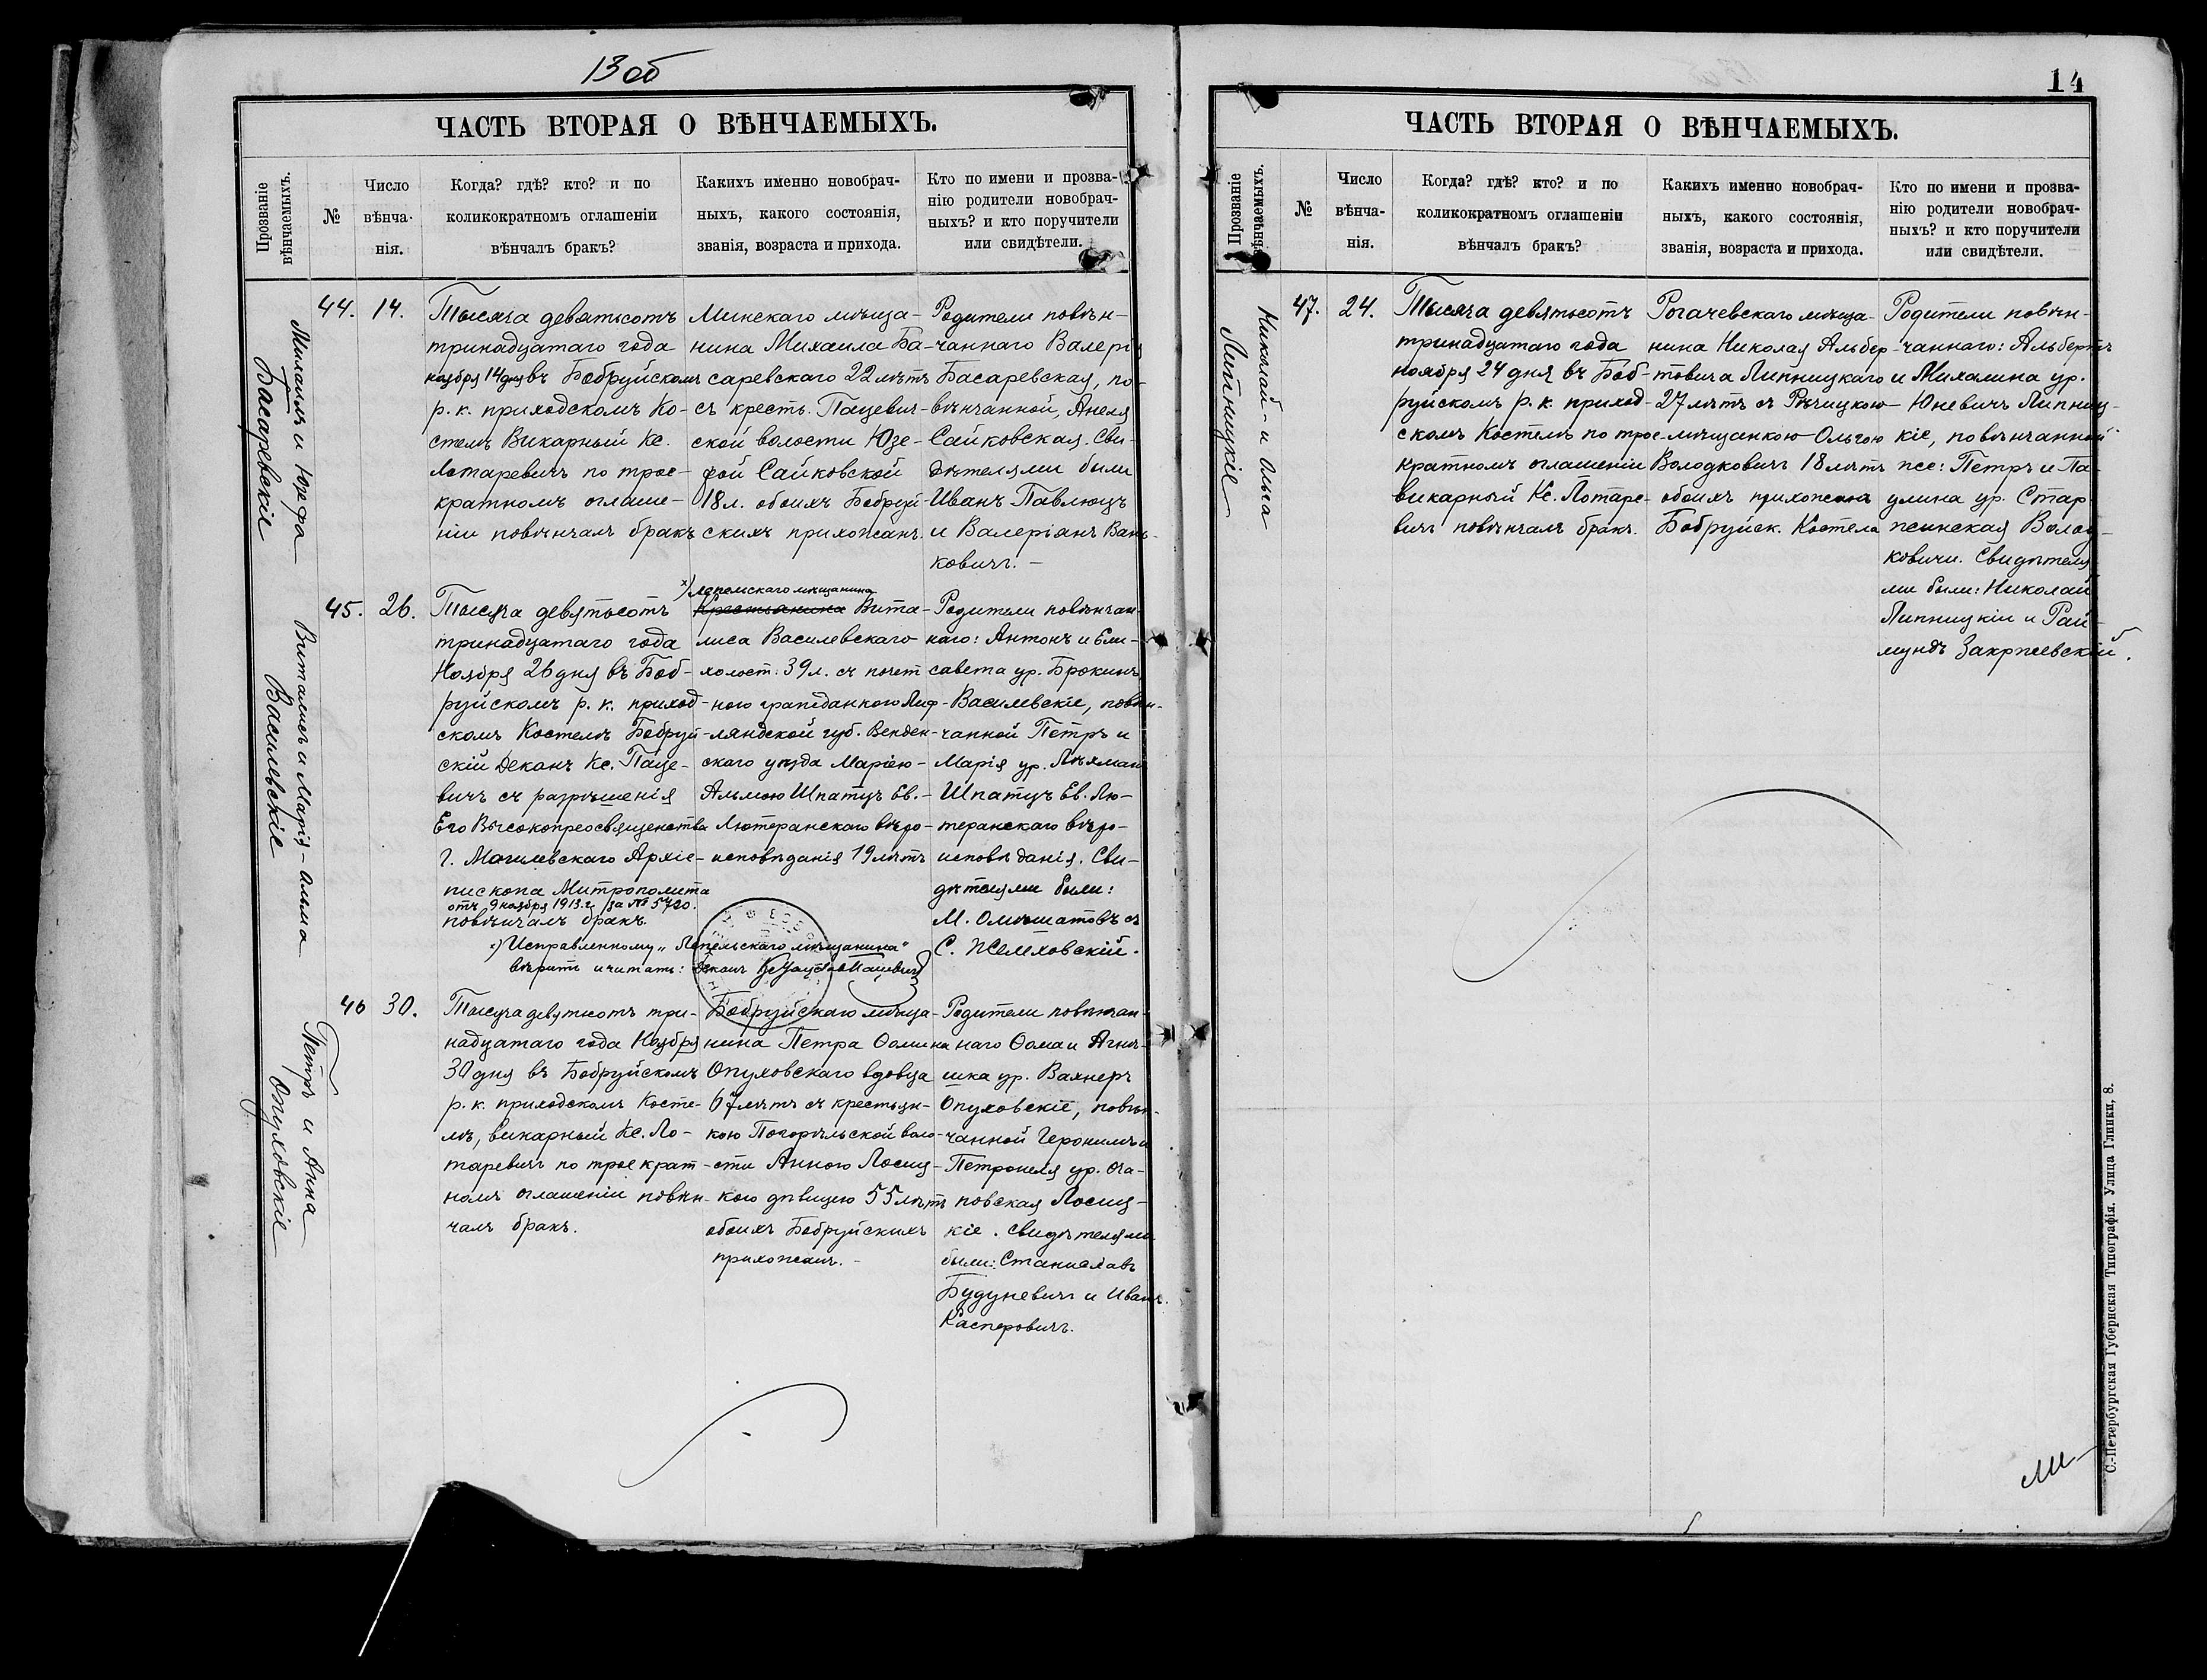 13 об
ЧАСТЬ ВТОРАЯ О ВѢНЧАЕМЫХЪ.
Прозваніе
вѣнчаемыхъ.
№
Число
вѣнча-
нія.
Когда? гдѣ? кто? и по
коликократномъ оглашеніи
вѣнчалъ бракъ?
Какихъ именно новобрач-
ныхъ, какого состоянія,
званія, возраста и прихода.
Кто по имени и прозва-
нію родители новобрач-
ныхъ? и кто поручители
или свидѣтели.
Михаилъ и Юзефа
Басаревскіе
44.
14.
Тысяча девятьсотъ
тринадцатаго года
ноября 14 дня въ Бобруйскомъ
р. к. приходскомъ Ко-
стелѣ Викарный Кс.
Лотаревичъ по трое-
кратномъ оглаше-
ніи повѣнчалъ бракъ
Минскаго мѣща-
нина Михаила Ба-
саревскаго 22 лѣтъ
съ кресть. Пацевич-
ской волости Юзе-
фой Сайковской
18 л. обоихъ Бобруй-
скихъ прихожанъ.
Родители повѣн-
чаннаго Валерія
Басаревская, по-
вѣнчанной, Анеля
Сайковская. Сви-
дѣтелями были
Иванъ Павлюцъ
и Валеріянъ Вань-
ковичъ. –
Виталисъ и Марія-Альма
Василевскіе
45.
26.
Тысяча девятьсотъ
тринадцатаго года
Ноября 26 дня въ Боб-
руйскомъ р. к. приход-
скомъ Костелѣ Бобруй-
скій Деканъ Кс. Паце-
вичъ съ разрѣшенія
Его Высокопреосвященства
г. Могилевскаго Архіе-
пископа Митрополита
отъ 9 ноября 1913 г. за № 5720.
повѣнчалъ бракъ.
х) Лепельскаго мѣщанина
Крестьянина Вита-
лиса Василевскаго
холост. 39 л. съ почет
ною гражданкою Лиф-
ляндской губ. Венден-
скаго уѣзда Маріею-
Альмою Шпатцъ Ев.-
Лютеранскаго вѣро-
исповѣданія 19 лѣтъ
Родители повѣнчан-
наго: Антонъ и Ели-
савета ур. Брокинъ
Василевскіе, повѣн-
чанной Петръ и
Марія ур. Лѣхман
Шпатцъ Ев. Лю-
теранскаго вѣро-
исповѣданія. Сви-
дѣтелями были:
М. Омѣшатовъ съ
С. Желяховскій.
х) Исправленному „Лепельскаго мѣщанина"
вѣрить и читать: Деканъ Пацевичъ
Петръ и Анна
Опуховскіе
46
30.
Тысяча девятьсотъ три-
надцатаго года Ноября
30 дня въ Бобруйскомъ
р. к. приходскомъ Косте-
лѣ, викарный Кс. Ло-
таревичъ по троекрат-
номъ оглашеніи повѣн-
чалъ бракъ.
Бобруйскаго мѣща-
нина Петра Ѳомина
Опуховскаго вдовца
67 лѣтъ съ крестьян-
кою Погорѣльской воло-
сти Анною Лосиц-
кою дѣвицею 55 лѣтъ
обоихъ Бобруйскихъ
прихожанъ. –
Родители повѣнчан-
наго Ѳома и Агнѣ-
шка ур. Вахнеръ
Опуховскіе, повѣн-
чанной Геронимъ и
Петронеля ур. Оча-
повская Лосиц-
кіе. Свидѣтелями
были: Станиславъ
Будуневичъ и Иванъ
Касперовичъ.
14
ЧАСТЬ ВТОРАЯ О ВѢНЧАЕМЫХЪ.
Прозваніе
вѣнчаемыхъ.
№
Число
вѣнча-
нія.
Когда? гдѣ? кто? и по
коликократномъ оглашеніи
вѣнчалъ бракъ?
Какихъ именно новобрач-
ныхъ, какого состоянія,
званія, возраста и прихода.
Кто по имени и прозва-
нію родители новобрач-
ныхъ? и кто поручители
или свидѣтели.
Николай и Ольга
Липницкіе
47.
24.
Тысяча девятьсотъ
тринадцатаго года
ноября 24 дня въ Боб-
руйскомъ р. к. приход-
скомъ Костелѣ по трое-
кратномъ оглашеніи
викарный Кс. Лотаре-
вичъ повѣнчалъ бракъ.
Рогачевскаго мѣща-
нина Николая Альбер-
товича Липницкаго
27 лѣтъ съ Рѣчицкою
мѣщанкою Ольгою
Володковичъ 18 лѣтъ
обоихъ прихожанъ
Бобруйск. Костела
Родители повѣн-
чаннаго: Альбертъ
и Михалина ур.
Юневичъ Липниц-
кіе, повѣнчанной
же: Петръ и Па-
улина ур. Стар-
жинская Волод-
ковичи. Свидѣтеля-
ми были: Николай
Липницкій и Рай-
мундъ Закржевскій.
С.-Петербургская Губернская Типографія. Улица Глинки, 8.